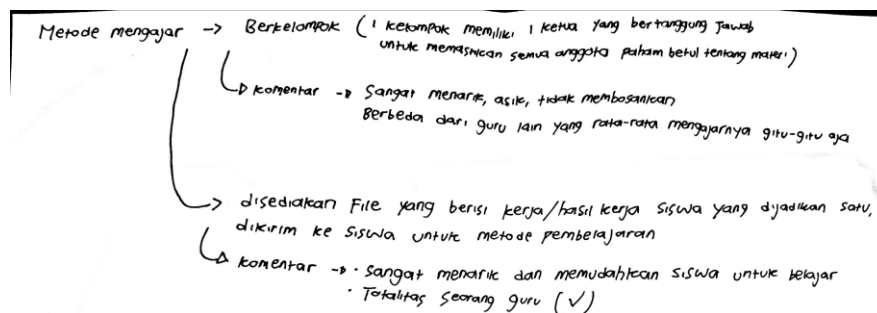 Metode mengajar -> Berkelompok (1 kelompok memiliki 1 ketua yang bertanggung jawab
untuk memastikan semua anggota paham betul tentang materi)
komentar -> Sangat menarik, asik, tidak membosankan
Berbeda dari guru lain yang rata-rata mengajarnya gitu-gitu aja
-> disediakan File yang berisi kerja/hasil kerja siswa yang dijadikan satu,
dikirim ke siswa untuk metode pembelajaran
komentar -> • Sangat menarik dan memudahkan siswa untuk belajar
• Totalitas seorang guru (✓)